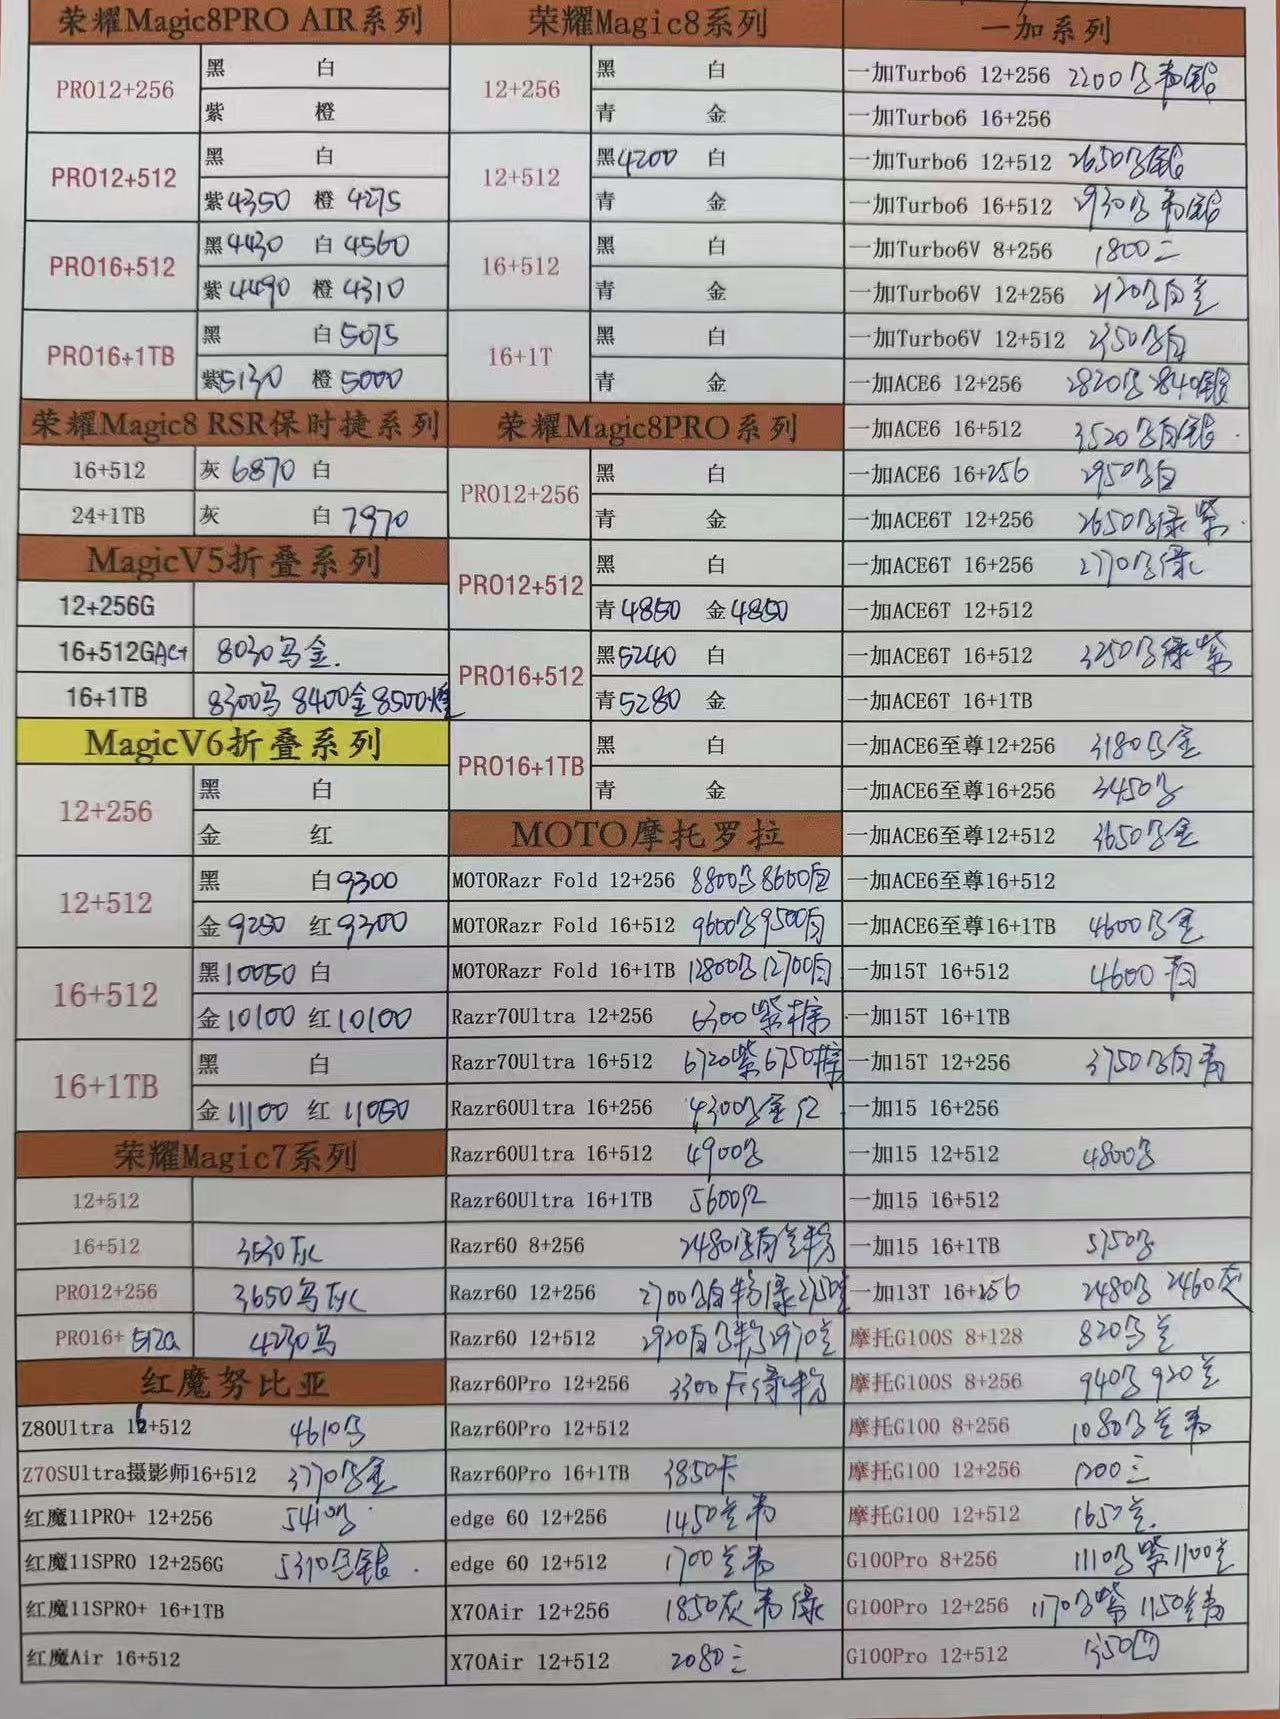 荣耀Magic8PRO AIR系列
PRO12+256
黑 白
紫 橙
PRO12+512
黑 白
紫4350 橙4275
PRO16+512
黑4430 白4560
紫4490 橙4310
PRO16+1TB
黑 白5075
紫5130 橙5000
荣耀Magic8 RSR保时捷系列
16+512 灰6870 白
24+1TB 灰 白7970
MagicV5折叠系列
12+256G
16+512G 8030 金
16+1TB 8300 8400金8500
MagicV6折叠系列
12+256
黑 白
金 红
12+512
黑 白9300
金9250 红9300
16+512
黑10050 白
金10100 红10100
16+1TB
黑 白
金11100 红11050
荣耀Magic7系列
12+512
16+512 3530灰
PRO12+256 3650 灰
PRO16+512G 4230
红魔努比亚
Z80Ultra 16+512 4610
Z70SUltra摄影师16+512 3770 金
红魔11PRO+ 12+256 5410
红魔11SPRO 12+256G 5310 银
红魔11SPRO+ 16+1TB
红魔Air 16+512
荣耀Magic8系列
12+256
黑 白
青 金
12+512
黑4200 白
青 金
16+512
黑 白
青 金
16+1T
黑 白
青 金
荣耀Magic8PRO系列
PRO12+256
黑 白
青 金
PRO12+512
黑 白
青4850 金4850
PRO16+512
黑5240 白
青5280 金
PRO16+1TB
黑 白
青 金
MOTO摩托罗拉
MOTORazr Fold 12+256 8800 8600白
MOTORazr Fold 16+512 9600 9500白
MOTORazr Fold 16+1TB 12800 12700白
Razr70Ultra 12+256 6300紫
Razr70Ultra 16+512 6720紫6750
Razr60Ultra 16+256 4300 金红
Razr60Ultra 16+512 4900
Razr60Ultra 16+1TB 5600红
Razr60 8+256 2480 白兰粉
Razr60 12+256 2700 白粉绿2750
Razr60 12+512 2920白 粉2970兰
Razr60Pro 12+256 3300卡绿粉
Razr60Pro 12+512
Razr60Pro 16+1TB 3850卡
edge 60 12+256 1450兰青
edge 60 12+512 1700兰青
X70Air 12+256 1850灰青绿
X70Air 12+512 2080三
一加系列
一加Turbo6 12+256 2200 青银
一加Turbo6 16+256
一加Turbo6 12+512 2650 银
一加Turbo6 16+512 2930 青银
一加Turbo6V 8+256 1800三
一加Turbo6V 12+256 2120 白兰
一加Turbo6V 12+512 2350 白
一加ACE6 12+256 2820 2840银
一加ACE6 16+512 3520 白银
一加ACE6 16+256 2950 白
一加ACE6T 12+256 2650 绿紫
一加ACE6T 16+256 2770 绿
一加ACE6T 12+512
一加ACE6T 16+512 3250 绿紫
一加ACE6T 16+1TB
一加ACE6至尊12+256 3180 金
一加ACE6至尊16+256 3450
一加ACE6至尊12+512 3650 金
一加ACE6至尊16+512
一加ACE6至尊16+1TB 4600 金
一加15T 16+512 4600
一加15T 16+1TB
一加15T 12+256 3750 白青
一加15 16+256
一加15 12+512 4800
一加15 16+512
一加15 16+1TB 5750
一加13T 16+256 2480 2460灰
摩托G100S 8+128 820 兰
摩托G100S 8+256 940 920兰
摩托G100 8+256 1080 兰青
摩托G100 12+256 1200三
摩托G100 12+512 1650兰
G100Pro 8+256 1110 紫1100兰
G100Pro 12+256 1170 紫1150兰青
G100Pro 12+512 1350四